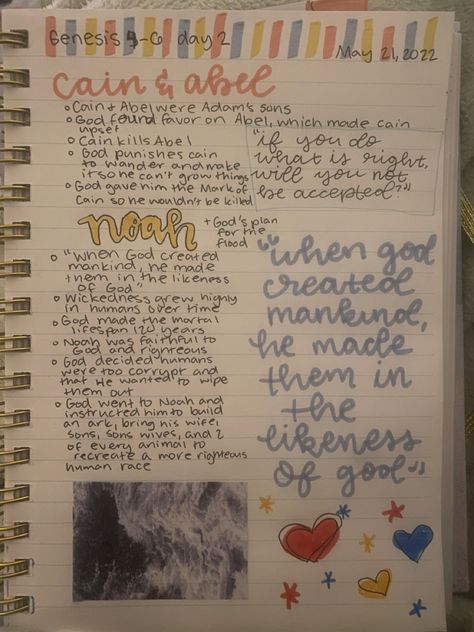 Genesis 3-6 day 2
May 21, 2022
cain & abel
Cain + Abel were Adam's sons
God found favor on Abel, which made cain
upset
Cain kills Abel
God punishes cain
to wander and make
it so he can't grow things
God gave him the Mark of
Cain so he wouldn't be killed
"if you do
what is right,
will you not
be accepted?"
noah
+ God's plan
for the
flood
"When God created
mankind, he made
them in the likeness
of God"
Wickedness grew highly
in humans over time
God made the mortal
lifespan 120 years
Noah was faithful to
God and righteous
God decided humans
were too corrupt and
that He wanted to wipe
them out
God went to Noah and
instructed him to build
an ark, bring his wife,
sons, sons wives, and 2
of every animal to
recreate a more righteous
human race
"when god
created
mankind,
he made
them in
the
likeness
of god"